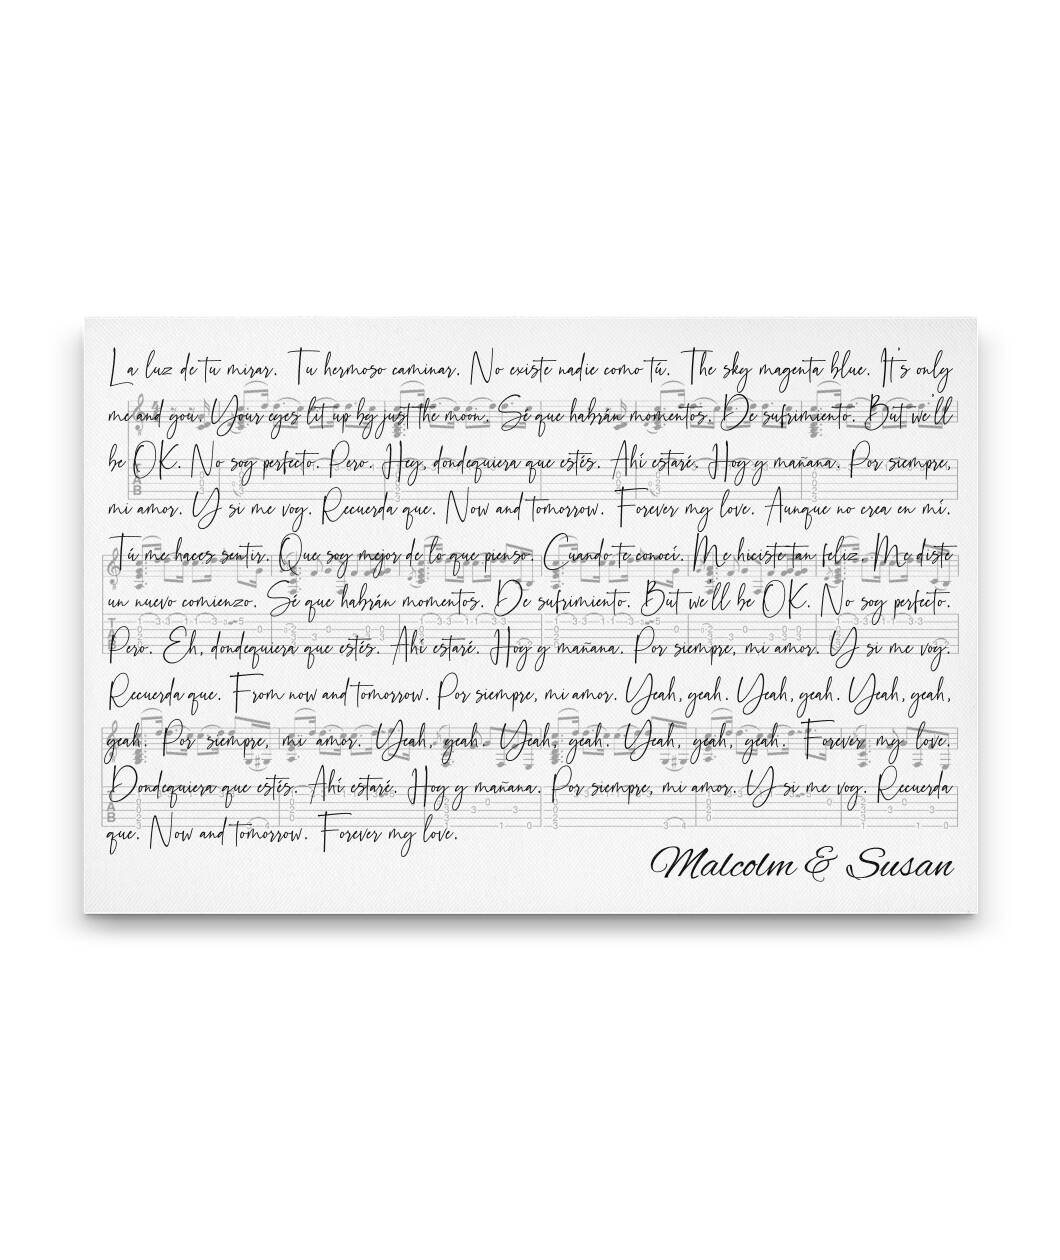 La luz de tu mirar. Tu hermoso caminar. No existe nadie como tú. The sky magenta blue. It's only
me and you. Your eyes lit up by just the moon. Sé que habrán momentos. De sufrimiento. But we'll
be OK. No soy perfecto. Pero. Hey, dondequiera que estés. Ahí estaré. Hoy y mañana. Por siempre,
mi amor. Y si me voy. Recuerda que. Now and tomorrow. Forever my love. Aunque no crea en mí.
Tú me haces sentir. Que soy mejor de lo que pienso. Cuando te conocí. Me hiciste tan feliz. Me diste
un nuevo comienzo. Sé que habrán momentos. De sufrimiento. But we'll be OK. No soy perfecto.
Pero. Eh, dondequiera que estés. Ahí estaré. Hoy y mañana. Por siempre, mi amor. Y si me voy.
Recuerda que. From now and tomorrow. Por siempre, mi amor. Yeah, yeah. Yeah, yeah. Yeah, yeah,
yeah. Por siempre, mi amor. Yeah, yeah. Yeah, yeah. Yeah, yeah, yeah. Forever my love.
Dondequiera que estés. Ahí estaré. Hoy y mañana. Por siempre, mi amor. Y si me voy. Recuerda
que. Now and tomorrow. Forever my love.
Malcolm & Susan